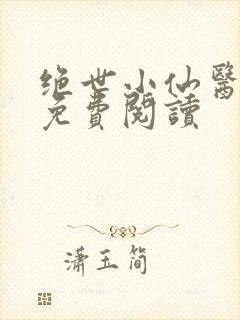 绝世小仙醫
免費閱讀
潇玉简